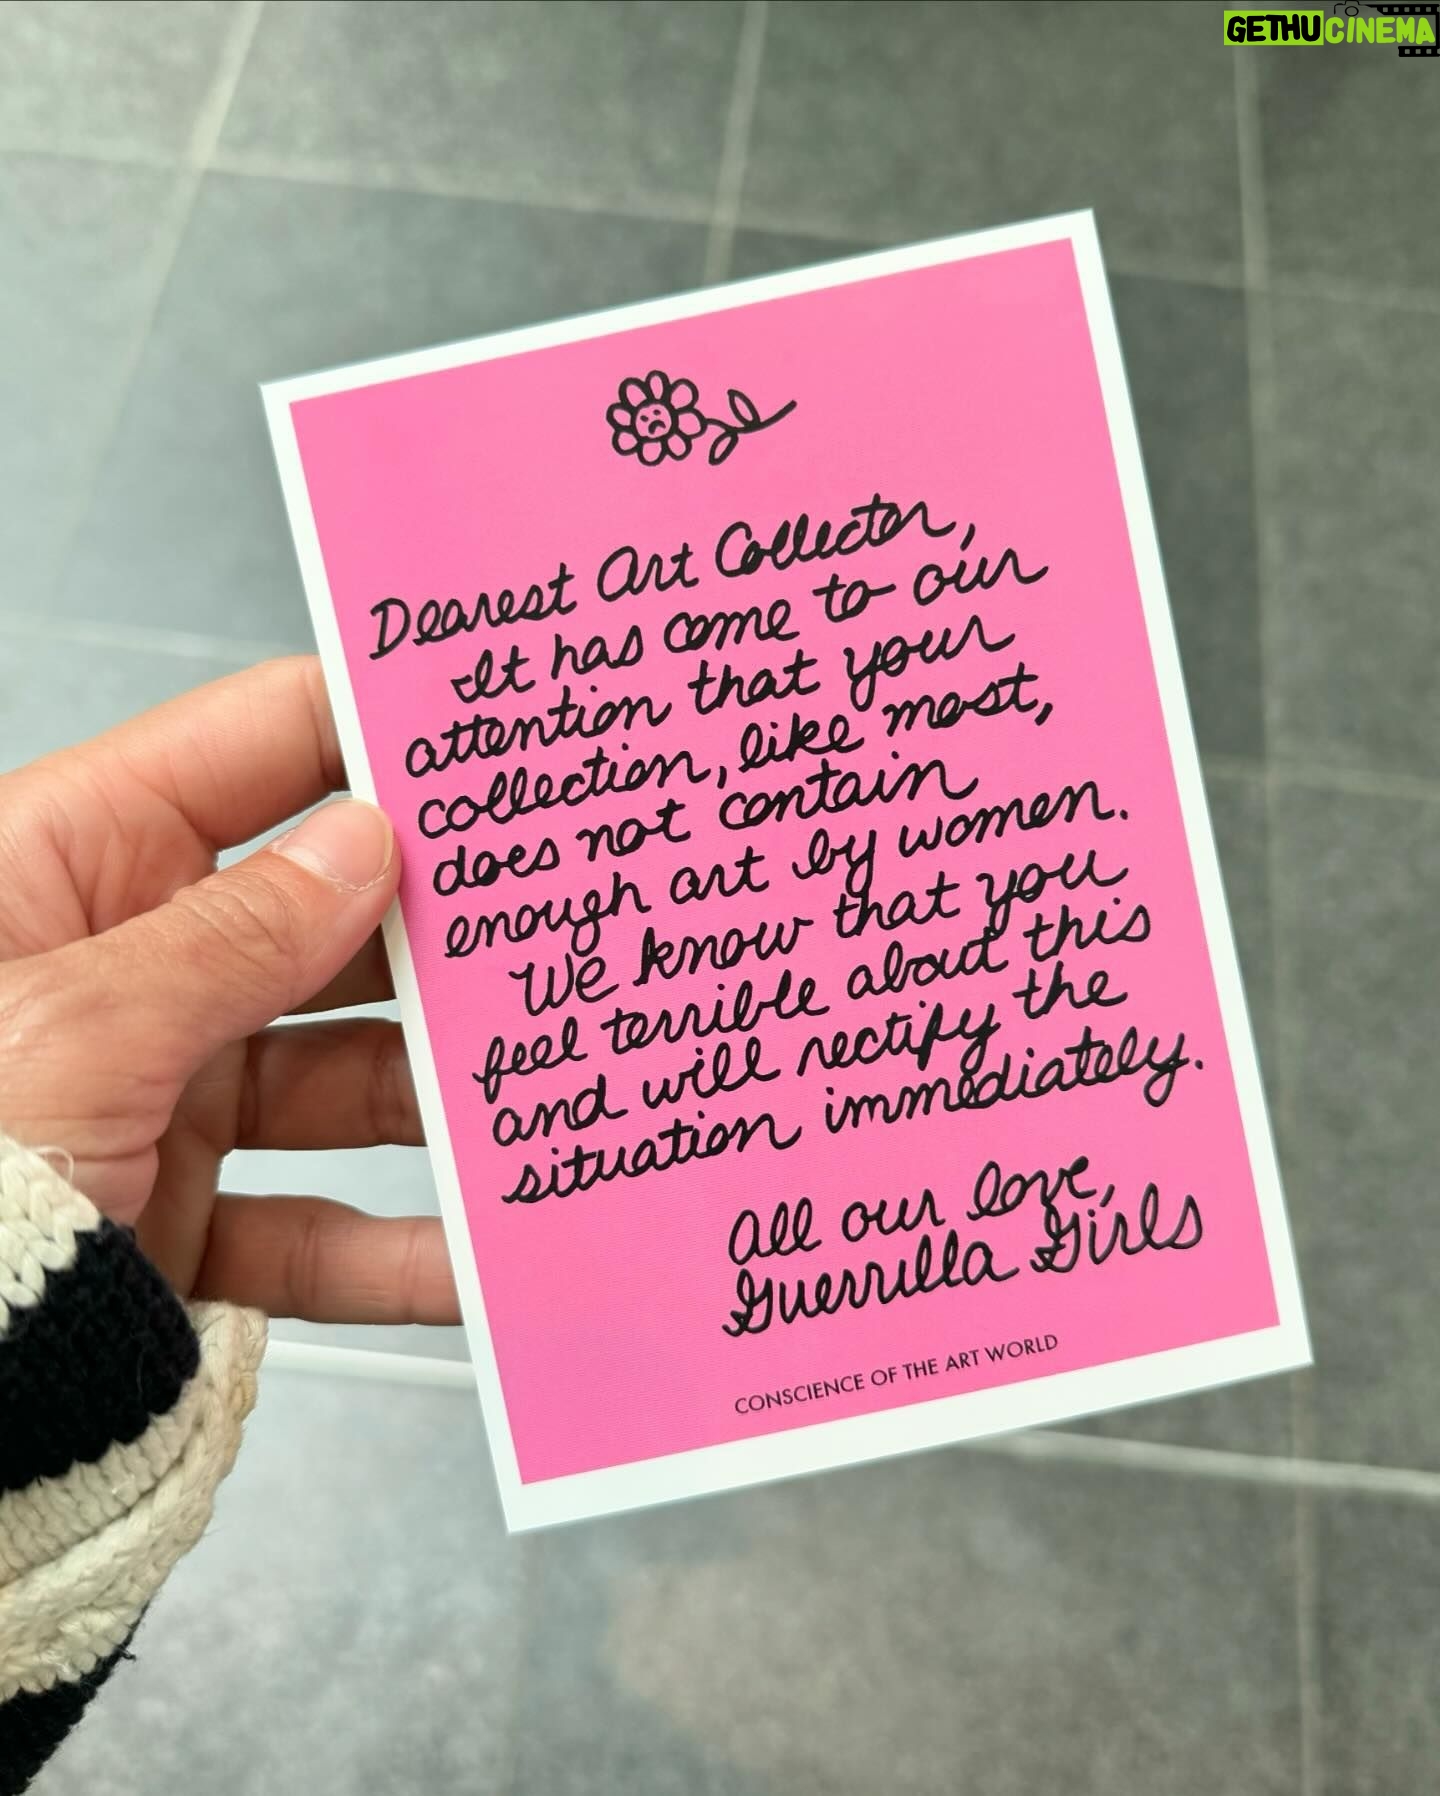 GETHUCINEMA
Dearest Art Collector,
It has come to our
attention that your
collection, like most,
does not contain
enough art by women.
We know that you
feel terrible about this
and will rectify the
situation immediately.
All our love,
Guerrilla Girls
CONSCIENCE OF THE ART WORLD